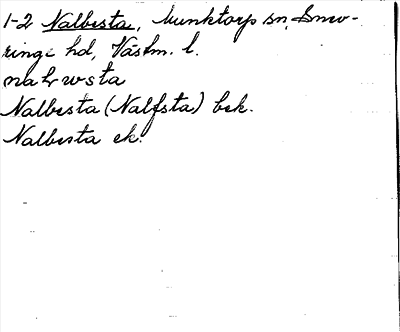 1-2 Nalbesta, Munktorp sn, Snev-
ringe hd, Västm. l.
nalwsta
Nalbesta (Nalfsta) bek.
Nalbesta ek.